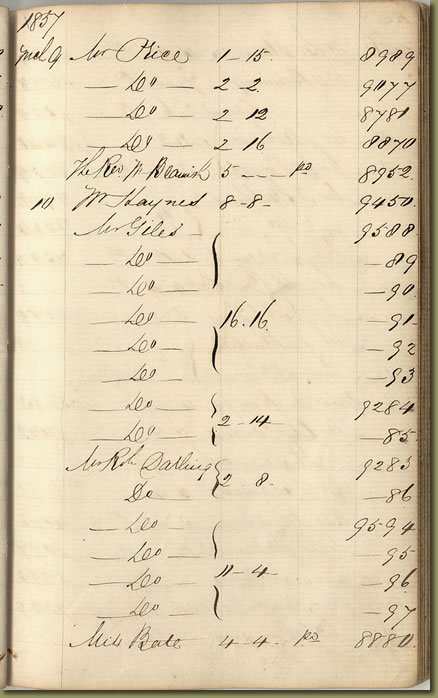 1857
Mch 9 Mr Rice 1-15. 8989
— Do — 2-2. 9077
— Do — 2 12 8781
— Do — 2 16 8870
The Rev. W Beamish 5 - - - pd 8952.
10 W Haynes 8-8- 9450.
Mr Giles 9588
— Do — — 89
— Do — — 90.
— Do — 16.16. — 91
— Do — — 92
— Do — — 93
— Do — 9284
— Do — 2-14 — 85
Mr Robt Darling 9283
Do 2 - 8- — 86
— Do — 9594
— Do — — 95
— Do — 11-4- — 96
— Do — — 97
Miss Bate 4-4- pd 8880.